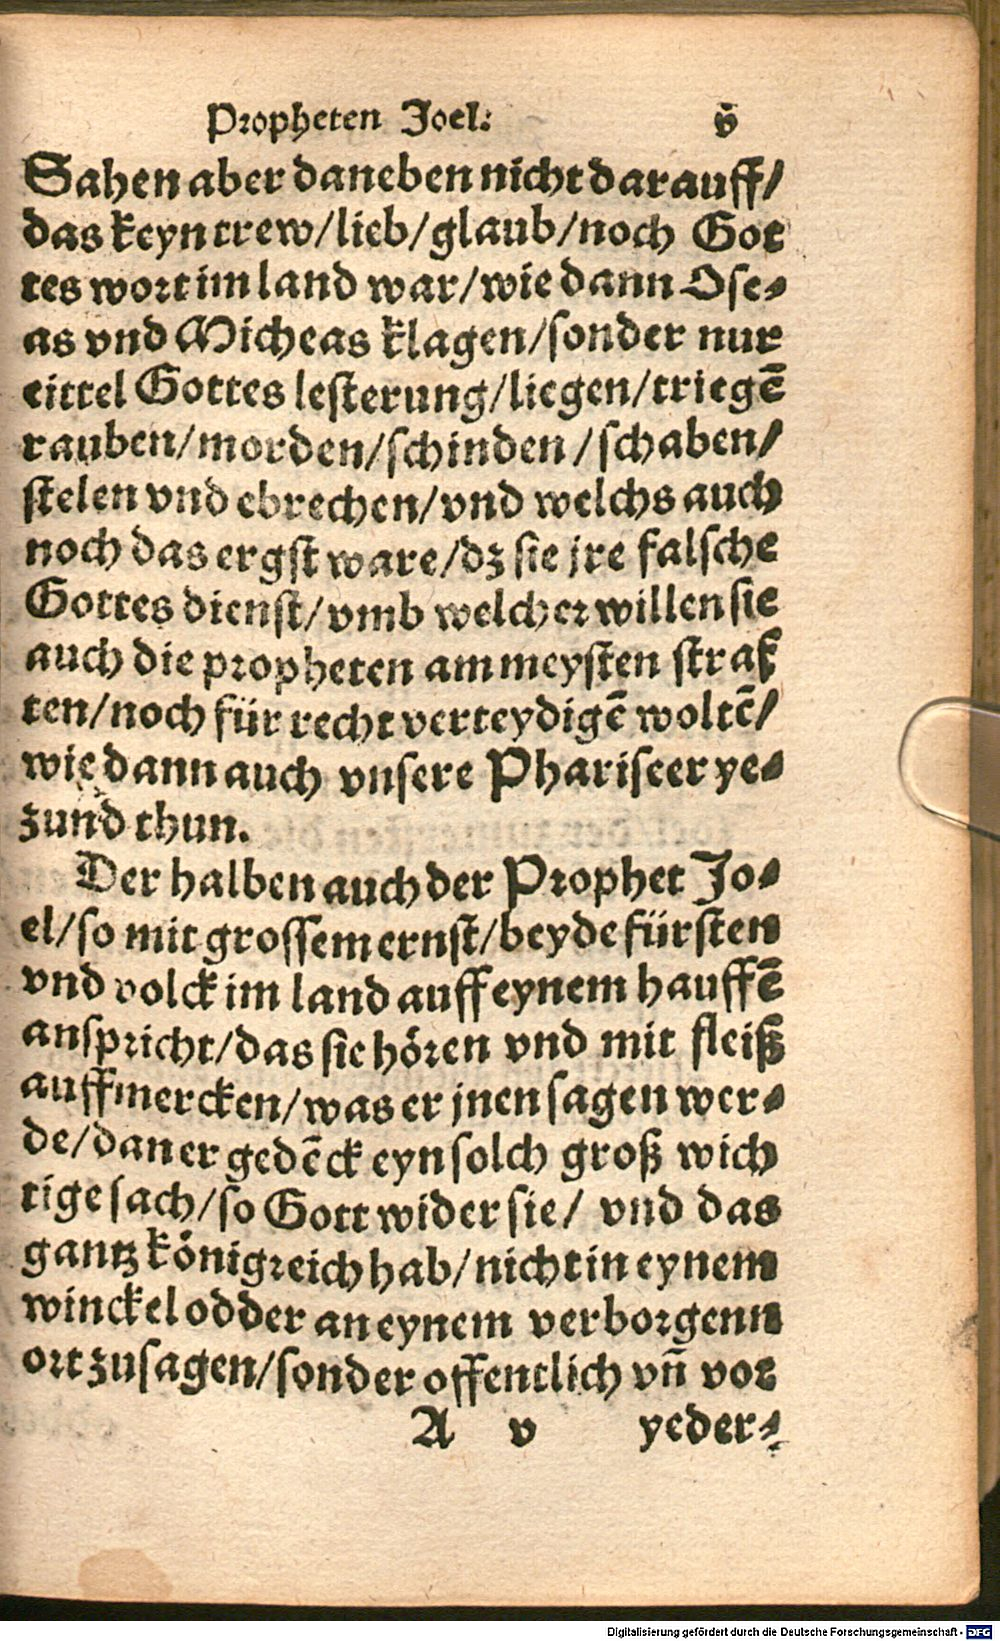 Propheten Joel. v̄
Sahen aber daneben nicht darauff/
das keyn trew/lieb/glaub/noch Got
tes wort im land war/wie dann Ose⸗
as vnd Micheas klagen/sonder nur
eittel Gottes lesterung/liegen/triegē
rauben/morden/schinden/schaben/
stelen vnd ebrechen/vnd welchs auch
noch das ergst ware/dz sie jre falsche
Gottes dienst/vmb welcher willen sie
auch die propheten am meysten straf
ten/noch für recht verteydigē woltē/
wie dann auch vnsere Phariseer ye⸗
zund thun.
Der halben auch der Prophet Jo⸗
el/so mit grossem ernst/beyde fürsten
vnd volck im land auff eynem hauffē
anspricht/das sie hören vnd mit fleiß
auffmercken/was er jnen sagen wer⸗
de/dan er gedēck eyn solch groß wich
tige sach/so Gott wider sie/ vnd das
gantz königreich hab/nicht in eynem
winckel odder an eynem verborgenn
ort zusagen/sonder offentlich vn̄ vor
A v yeder⸗
Digitalisierung gefördert durch die Deutsche Forschungsgemeinschaft - DFG